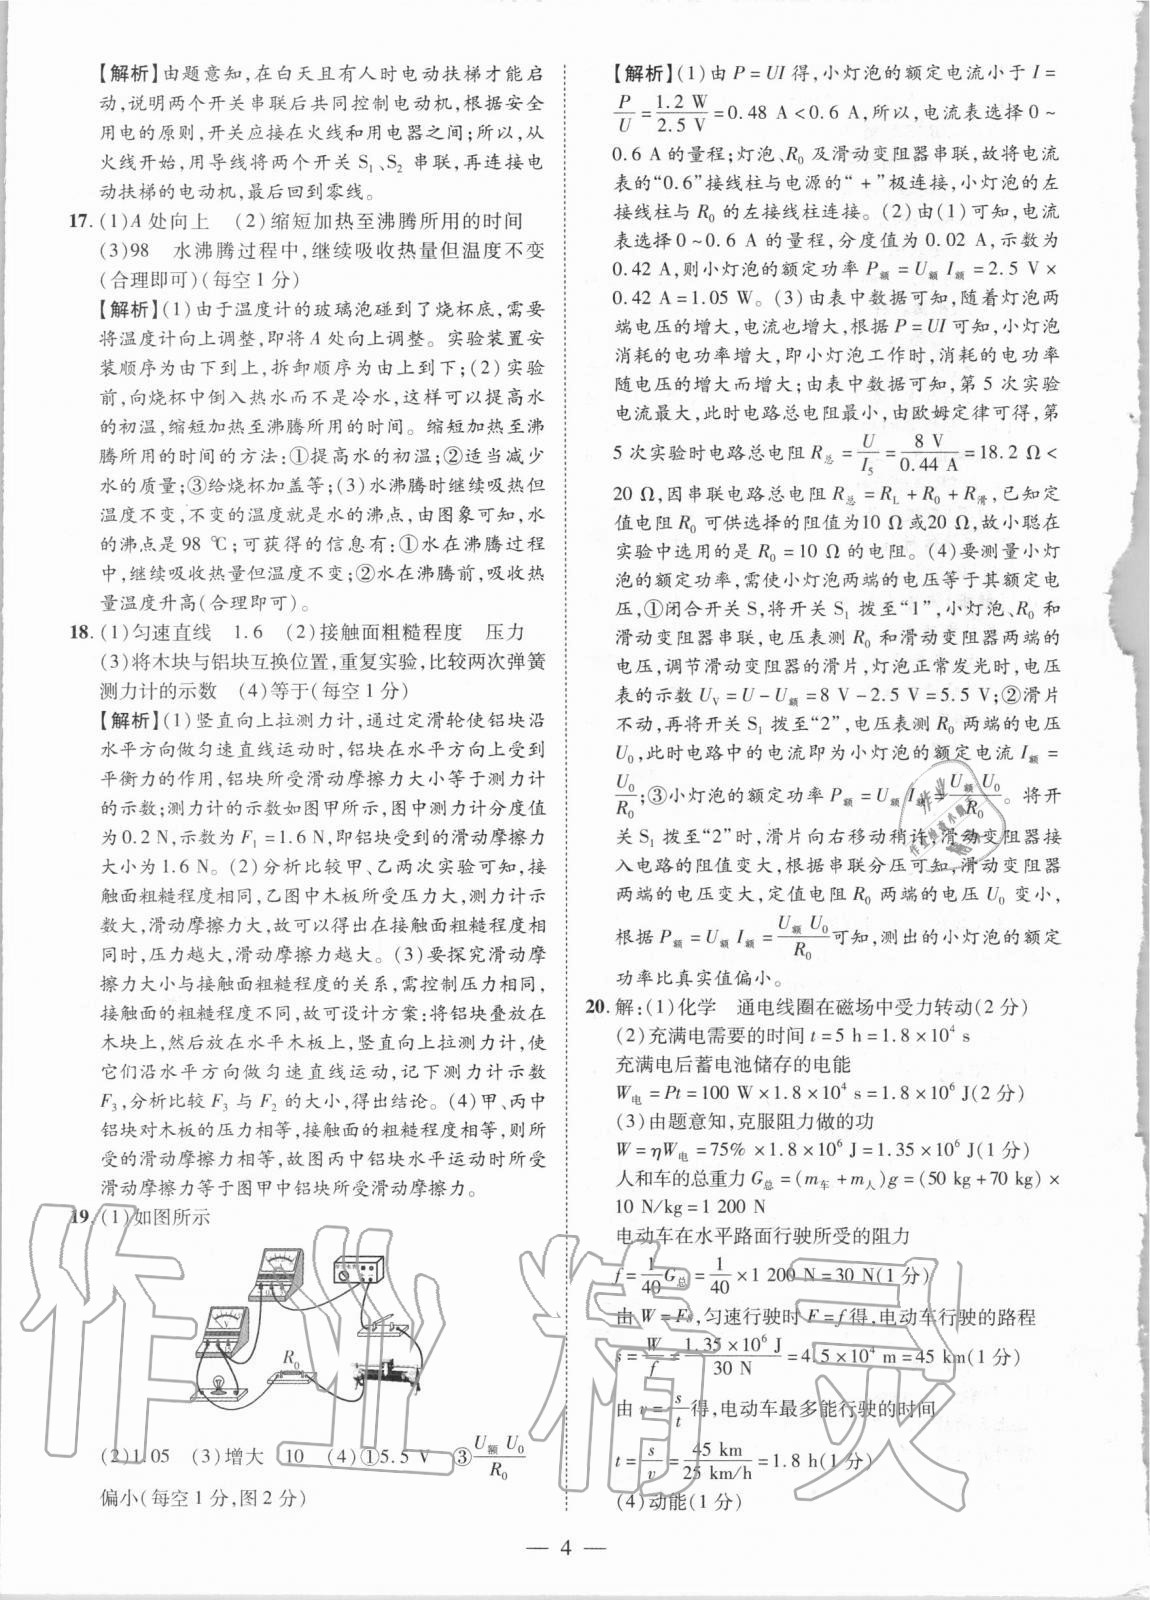 【解析】由题意知,在白天且有人时电动扶梯才能启
动,说明两个开关串联后共同控制电动机,根据安全
用电的原则,开关应接在火线和用电器之间;所以,从
火线开始,用导线将两个开关 S₁、S₂ 串联,再连接电
动扶梯的电动机,最后回到零线。
17. (1)A 处向上 (2)缩短加热至沸腾所用的时间
(3)98 水沸腾过程中,继续吸收热量但温度不变
(合理即可)(每空 1 分)
【解析】(1)由于温度计的玻璃泡碰到了烧杯底,需要
将温度计向上调整,即将 A 处向上调整。实验装置安
装顺序为由下到上,拆卸顺序为由上到下;(2)实验
前,向烧杯中倒入热水而不是冷水,这样可以提高水
的初温,缩短加热至沸腾所用的时间。缩短加热至沸
腾所用的时间的方法:①提高水的初温;②适当减少
水的质量;③给烧杯加盖等;(3)水沸腾时继续吸热但
温度不变,不变的温度就是水的沸点,由图象可知,水
的沸点是 98 ℃;可获得的信息有:①水在沸腾过程
中,继续吸收热量但温度不变;②水在沸腾前,吸收热
量温度升高(合理即可)。
18. (1)匀速直线 1.6 (2)接触面粗糙程度 压力
(3)将木块与铝块互换位置,重复实验,比较两次弹簧
测力计的示数 (4)等于(每空 1 分)
【解析】(1)竖直向上拉测力计,通过定滑轮使铝块沿
水平方向做匀速直线运动时,铝块在水平方向上受到
平衡力的作用,铝块所受滑动摩擦力大小等于测力计
的示数;测力计的示数如图甲所示,图中测力计分度值
为 0.2 N,示数为 F₁=1.6 N,即铝块受到的滑动摩擦力
大小为 1.6 N。(2)分析比较甲、乙两次实验可知,接
触面粗糙程度相同,乙图中木板所受压力大,测力计示
数大,滑动摩擦力大,故可以得出在接触面粗糙程度相
同时,压力越大,滑动摩擦力越大。(3)要探究滑动摩
擦力大小与接触面粗糙程度的关系,需控制压力相同,
接触面的粗糙程度不同,故可设计方案:将铝块叠放在
木块上,然后放在水平木板上,竖直向上拉测力计,使
它们沿水平方向做匀速直线运动,记下测力计示数
F₃,分析比较 F₃ 与 F₂ 的大小,得出结论。(4)甲、丙中
铝块对木板的压力相等,接触面的粗糙程度相等,则所
受的滑动摩擦力相等,故图丙中铝块水平运动时所受
滑动摩擦力等于图甲中铝块所受滑动摩擦力。
19. (1)如图所示
R₀
(2)1.05 (3)增大 10 (4)①5.5 V ③U额 U₀/R₀
偏小(每空 1 分,图 2 分)
【解析】(1)由 P=UI 得,小灯泡的额定电流小于 I=
P/U=1.2 W/2.5 V=0.48 A<0.6 A,所以,电流表选择 0~
0.6 A 的量程;灯泡、R₀ 及滑动变阻器串联,故将电流
表的“0.6”接线柱与电源的“+”极连接,小灯泡的左
接线柱与 R₀ 的左接线柱连接。(2)由(1)可知,电流
表选择 0~0.6 A 的量程,分度值为 0.02 A,示数为
0.42 A,则小灯泡的额定功率 P额=U额 I额=2.5 V×
0.42 A=1.05 W。(3)由表中数据可知,随着灯泡两
端电压的增大,电流也增大,根据 P=UI 可知,小灯泡
消耗的电功率增大,即小灯泡工作时,消耗的电功率
随电压的增大而增大;由表中数据可知,第 5 次实验
电流最大,此时电路总电阻最小,由欧姆定律可得,第
5 次实验时电路总电阻 R总=U/I₅=8 V/0.44 A=18.2 Ω<
20 Ω,因串联电路总电阻 R总=R_L+R₀+R滑,已知定
值电阻 R₀ 可供选择的阻值为 10 Ω 或 20 Ω,故小聪在
实验中选用的是 R₀=10 Ω 的电阻。(4)要测量小灯
泡的额定功率,需使小灯泡两端的电压等于其额定电
压,①闭合开关 S,将开关 S₁ 拨至“1”,小灯泡、R₀ 和
滑动变阻器串联,电压表测 R₀ 和滑动变阻器两端的
电压,调节滑动变阻器的滑片,灯泡正常发光时,电压
表的示数 U_V=U-U额=8 V-2.5 V=5.5 V;②滑片
不动,再将开关 S₁ 拨至“2”,电压表测 R₀ 两端的电压
U₀,此时电路中的电流即为小灯泡的额定电流 I额=
U₀/R₀;③小灯泡的额定功率 P额=U额 I额=U额 U₀/R₀。将开
关 S₁ 拨至“2”时,滑片向右移动稍许,滑动变阻器接
入电路的阻值变大,根据串联分压可知,滑动变阻器
两端的电压变大,定值电阻 R₀ 两端的电压 U₀ 变小,
根据 P额=U额 I额=U额 U₀/R₀可知,测出的小灯泡的额定
功率比真实值偏小。
20. 解:(1)化学 通电线圈在磁场中受力转动(2 分)
(2)充满电需要的时间 t=5 h=1.8×10⁴ s
充满电后蓄电池储存的电能
W电=Pt=100 W×1.8×10⁴ s=1.8×10⁶ J(2 分)
(3)由题意知,克服阻力做的功
W=ηW电=75%×1.8×10⁶ J=1.35×10⁶ J(1 分)
人和车的总重力 G总=(m车+m人)g=(50 kg+70 kg)×
10 N/kg=1 200 N
电动车在水平路面行驶所受的阻力
f=1/40 G总=1/40×1 200 N=30 N(1 分)
由 W=Fs,匀速行驶时 F=f 得,电动车行驶的路程
s=W/f=1.35×10⁶ J/30 N=4.5×10⁴ m=45 km(1 分)
由 v=s/t 得,电动车最多能行驶的时间
t=s/v=45 km/25 km/h=1.8 h(1 分)
(4)动能(1 分)
— 4 —
作业精灵